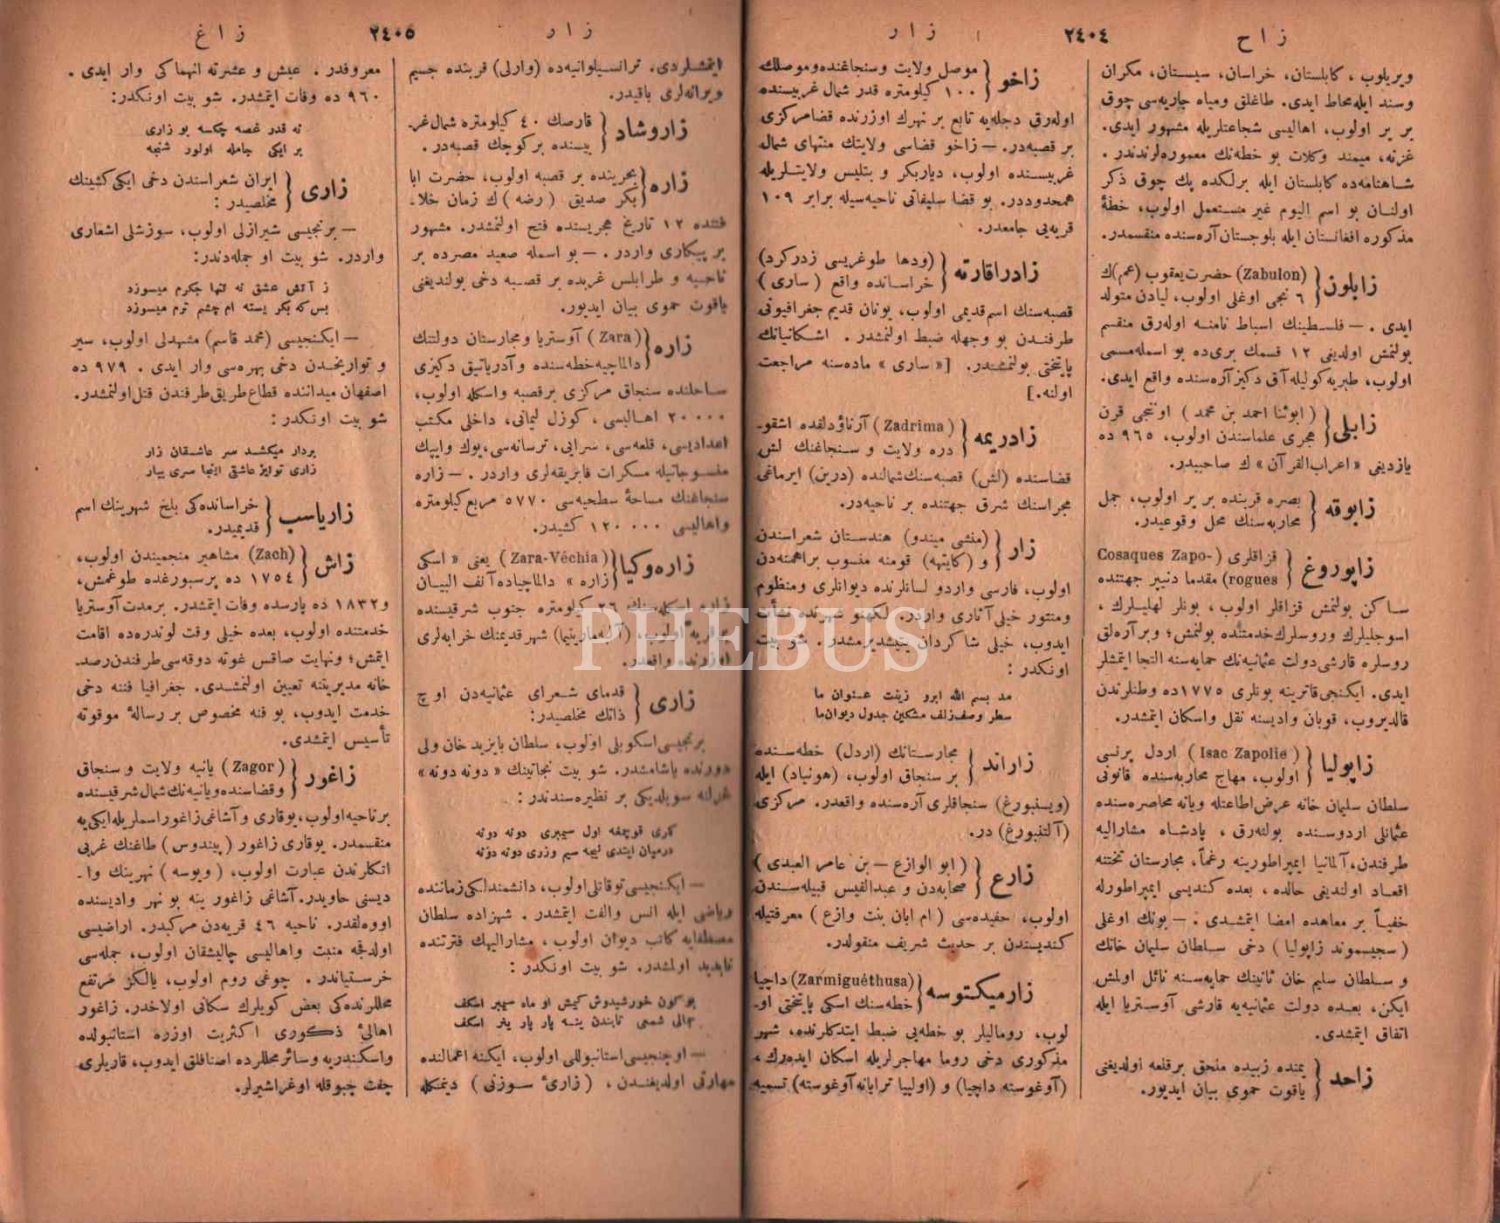 زاح
٢٤٠٤
زار
ويريلوب ، كابلستان، خراسان، سيستان، مكران
وسند ايله محاط ايدى. طاغلق ومياه جاريه‌سى چوق
بر ير اولوب، اهاليسى شجاعتلريله مشهور ايدى.
غزنه، ميمند وكلات بو خطه‌نك معموره‌لرندندر .
شاهنامه‌ده كابلستان ايله برلكده پك چوق ذكر
اولنان بو اسم اليوم غير مستعمل اولوب، خطهٔ
مذكوره افغانستان ايله بلوچستان آره‌سنده منقسمدر.
زابلون { (Zabulon) حضرت يعقوب (عم)ك
٦ نجى اوغلى اولوب، ليادن متولد
ايدى . — فلسطينك اسباط نامنه اوله‌رق منقسم
بولنمش اولدينى ١٢ قسمك برى‌ده بو اسمله مسمى
اولوب، طبريه كوليله آق دكيز آره‌سنده واقع ايدى.
زابلى { (ابوثنا احمد بن محمد ) اونجى قرن
هجرى علماسندن اولوب، ٩٦٥ ده
يازدينى «اعراب القرآن» ك صاحبيدر.
زابوقه { بصره قربنده بر ير اولوب، جمل
محاربه‌سنك محل وقوعيدر.
زاپوروغ { قزاقلرى (Cosaques Zapo-
rogues) مقدما دنيپر جهتنده
ساكن بولنمش قزاقلر اولوب ، بونلر لهليلرك ،
اسوجليلرك وروسلرك خدمتنده بولنمش؛ وبر آره‌لق
روسلره قارشى دولت عثمانيه‌نك حمايه‌سنه التجا ايتمشلر
ايدى. ايكنجى قاترينه بونلرى ١٧٧٥ ده وطنلرندن
قالديروب، قوبان واديسنه نقل واسكان ايتمشدر.
زاپوليا { (Isac Zapolie) اردل پرنسى
اولوب، مهاج محاربه‌سنده قانونى
سلطان سليمان خانه عرض اطاعتله ويانه محاصره‌سنده
عثمانلى اردوسنده بولنه‌رق ، پادشاه مشاراليه
طرفندن، آلمانيا ايمپراطورينه رغماً، مجارستان تختنه
اقعاد اولندينى حالده ، بعده كنديسى ايمپراطورله
خفياً بر معاهده امضا ايتمشدى . — بونك اوغلى
(سجيسموند زاپوليا) دخى سلطان سليمان خانك
و سلطان سليم خان ثانينك حمايه‌سنه نائل اولمش
ايكن، بعده دولت عثمانيه‌يه قارشى آوستريا ايله
اتفاق ايتمشدى.
زاحد { يمنده زبيده ملحق بر قلعه اولديغنى
ياقوت حموى بيان ايديور.
زاخو { موصل ولايت وسنجاغنده وموصلك
١٠٠ كيلومتره قدر شمال غربيسنده
اوله‌رق دجله‌يه تابع بر نهرك اوزرنده قضا مركزى
بر قصبه‌در. — زاخو قضاسى ولايتك منتهاى شمال
غربيسنده اولوب، دياربكر و بتليس ولايتلريله
همحدوددر. بو قضا سليفانى ناحيه‌سيله برابر ١٠٩
قريه‌يى جامعدر.
زادراقارته { (ودها طوغريسى زدركرد)
خراسانده واقع (سارى)
قصبه‌سنك اسم قديمى اولوب، يونان قديم جغرافيونى
طرفندن بو وجهله ضبط اولنمشدر . اشكانيانك
پايتختى بولنمشدر. [«سارى» ماده‌سنه مراجعت
اولنه.]
زادريمه { (Zadrima) آرناؤدلقده اشقو-
دره ولايت و سنجاغنك لش
قضاسنده (لش) قصبه‌سنك شمالنده (درين) ايرماغى
مجراسنك شرق جهتنده بر ناحيه‌در.
زار { (منشى ميندو) هندستان شعراسندن
و (كايتهه) قومنه منسوب براهمه‌دن
اولوب، فارسى واردو لسانلرنده ديوانلرى ومنظوم
ومنثور خيلى آثارى واردر. لكهنو شهرنده نشأت
ايدوب، خيلى شاكردان يتيشديرمشدر. شو بيت
اونكدر :
مد بسم الله ابرو زينت عنوان ما
سطر وصف زلف مشكين جدول ديوان ما
زاراند { مجارستانك (اردل) خطه‌سنده
بر سنجاق اولوب، (هونياد) ايله
(ويسنبورغ) سنجاقلرى آره‌سنده واقعدر. مركزى
(آلتنبورغ) در.
زارع { (ابو الوازع — بن عامر العبدى)
صحابه‌دن و عبدالقيس قبيله‌سندن
اولوب، حفيده‌سى (ام ابان بنت وازع) معرفتيله
كنديسندن بر حديث شريف منقولدر.
زارميكتوسه { (Zarmiguéthusa) داچيا
خطه‌سنك اسكى پايتختى او-
لوب، روماليلر بو خطه‌يى ضبط ايتدكلرنده، شهر
مذكورى دخى روما مهاجرلريله اسكان ايده‌رك ،
(آوغوسته داچيا) و (اولپيا ترايانه آوغوسته) تسميه
زار
٢٤٠٥
زاغ
ايتمشلردى. ترانسيلوانيه‌ده (وارلى) قربنده جسيم
ويرانه‌لرى باقيدر.
زاروشاد { قارصك ٤٠ كيلومتره شمال غر-
بيسنده بر كوچك قصبه‌در.
زاره { بحرينده بر قصبه اولوب، حضرت ابا
بكر صديق (رضه) ك زمان خلا-
فتنده ١٢ تاريخ هجريسنده فتح اولنمشدر. مشهور
بر پيكارى واردر . — بو اسمله صعيد مصرده بر
ناحيه و طرابلس غربده بر قصبه دخى بولنديغنى
ياقوت حموى بيان ايديور.
زاره { (Zara) آوستريا ومجارستان دولتنك
دالماچيه خطه‌سنده و آدرياتيق دكيزى
ساحلنده سنجاق مركزى بر قصبه واسكله اولوب،
٢٠٠٠٠ اهاليسى، كوزل ليمانى، داخلى مكتب
اعداديسى، قلعه‌سى، سرايى، ترسانه‌سى، يوك وايپك
منسوجاتيله مسكرات فابريقه‌لرى واردر . — زاره
سنجاغنك مساحهٔ سطحيه‌سى ٥٧٧٠ مربع كيلومتره
واهاليسى ١٢٠٠٠٠ كشيدر.
زاره وكيا { (Zara-Véchia) يعنى «اسكى
زاره» دالماچياده آنف البيان
كيلومتره جنوب شرقيسنده
شهر قديمنك خرابه‌لرى
اوزرنده واقعدر.
زارى { قدماى شعراى عثمانيه‌دن اوچ
ذاتك مخلصيدر:
برنجيسى اسكوبلى اولوب، سلطان بايزيد خان ولى
دورنده ياشامشدر. شو بيت نجاتينك «دونه دونه»
غزلنه سويلديكى بر نظيره‌سندندر :
كارى قوچمغه اول سيمبرى دونه دونه
درميان ايتدى نيجه سيم وزرى دونه دونه
— ايكنجيسى توقاتلى اولوب، دانشمندلكى زماننده
رياضى ايله انس والفت ايتمشدر. شهزاده سلطان
مصطفايه كاتب ديوان اولوب ، مشاراليهك فترتنده
ناپديد اولمشدر. شو بيت اونكدر :
بوكون خورشيدوش كيمش او ماه سيمبر اسكف
جمالى شمعى تابندن ينه پار پار ينر اسكف
— اوچنجيسى استانبوللى اولوب، ايكينه اعمالنده
مهارتى اولديغندن، (زارىٔ سوزنى) ديمكله
معروفدر . عيش و عشرته انهماكى وار ايدى .
٩٦٠ ده وفات ايتمشدر. شو بيت اونكدر:
نه قدر غصه چكسه بو زارى
بر ايكى جامله اولور شنجه
زارى { ايران شعراسندن دخى ايكى كشينك
مخلصيدر :
— برنجيسى شيرازلى اولوب، سوزشلى اشعارى
واردر. شو بيت او جمله‌دندر:
ز آتش عشق نه تنها جكرم ميسوزد
بس كه بكر يسته ام چشم ترم ميسوزد
— ايكنجيسى (محمد قاسم) مشهدلى اولوب، سير
و تواريخدن دخى بهره‌سى وار ايدى . ٩٧٩ ده
اصفهان ميداننده قطاع طريق طرفندن قتل اولنمشدر.
شو بيت اونكدر :
بردار ميكشد سر عاشقان زار
زارى تو نيز عاشقى اينجا سرى بيار
زارياسب { خراسانده‌كى بلخ شهرينك اسم
قديميدر.
زاش { (Zach) مشاهير منجميندن اولوب،
١٧٥٤ ده پرسبورغده طوغمش،
و ١٨٣٢ ده پارسده وفات ايتمشدر. برمدت آوستريا
خدمتنده اولوب، بعده خيلى وقت لوندره‌ده اقامت
ايتمش؛ ونهايت صاقس غوته دوقه‌سى طرفندن رصد-
خانه مديريتنه تعيين اولنمشدى. جغرافيا فننه دخى
خدمت ايدوب، بو فنه مخصوص بر رسالهٔ موقوته
تأسيس ايتمشدى.
زاغور { (Zagor) يانيه ولايت و سنجاق
وقضاسنده ويانيه‌نك شمال شرقيسنده
بر ناحيه اولوب، يوقارى و آشاغى زاغور اسملريله ايكى‌يه
منقسمدر. يوقارى زاغور (پيندوس) طاغنك غربى
اتكلرندن عبارت اولوب، (ويوسه) نهرينك وا-
ديسنى حاويدر. آشاغى زاغور ينه بو نهر واديسنده
اووه‌لقدر. ناحيه ٤٦ قريه‌دن مركبدر. اراضيسى
اولدقجه منبت واهاليسى چاليشقان اولوب، جمله‌سى
خرستياندر . چوغى روم اولوب، يالكز مرتفع
محللرنده‌كى بعض كويلرك سكانى اولاخدر. زاغور
اهالىٔ ذكورى اكثريت اوزره استانبولده
واسكندريه و سائر محللرده اصنافلق ايدوب، قاريلرى
چفت چبوقله اوغراشيرلر.
PHEBUS